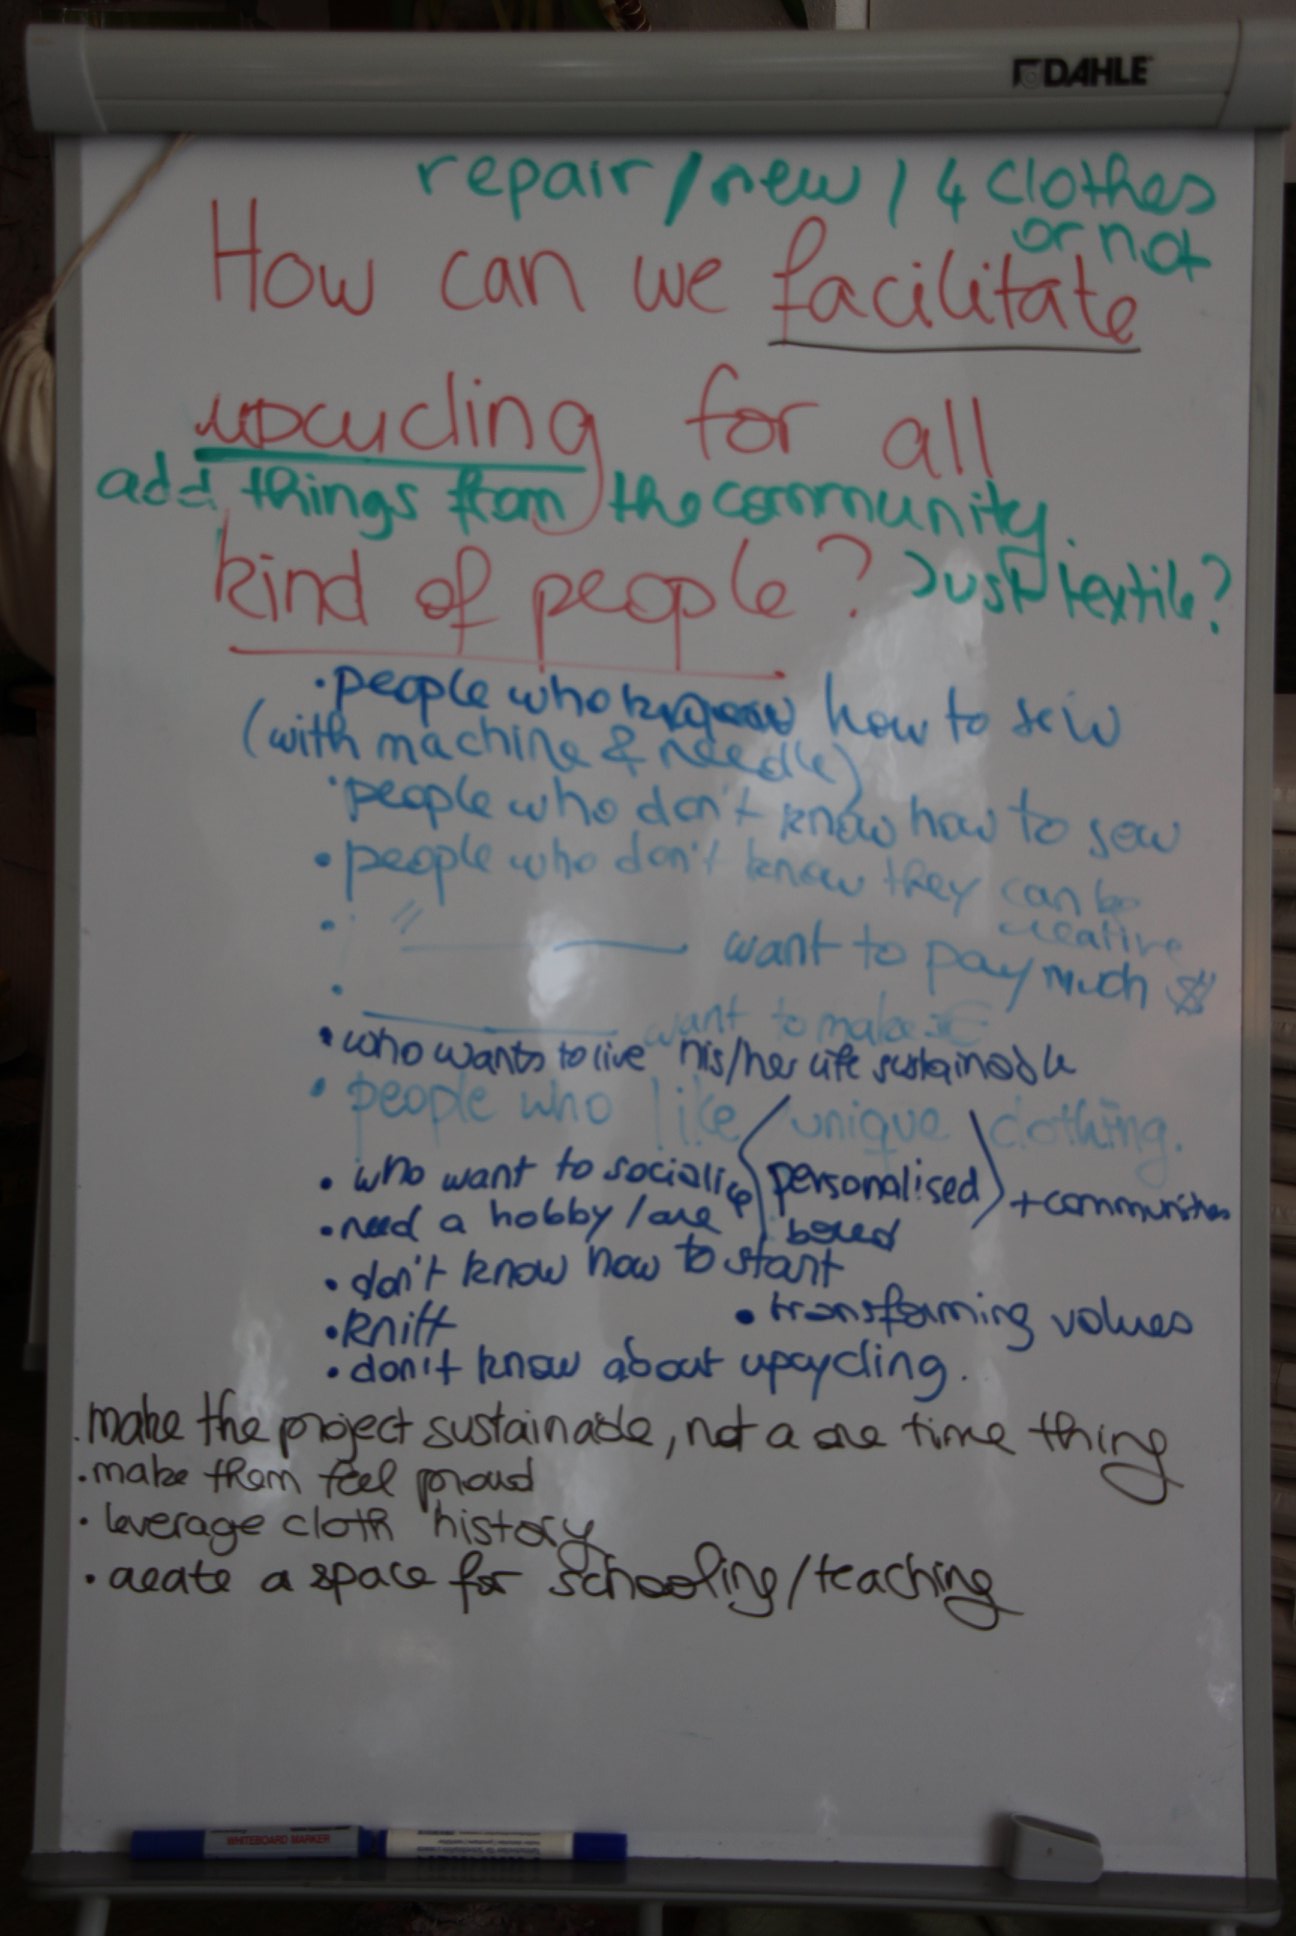 DAHLE
repair / new / 4 clothes
or not
How can we facilitate
upcycling for all
add things from the community.
kind of people ?
Just textile?
• people who know how to sew
(with machine & needle)
• people who don't know how to sew
• people who don't know they can be
creative
• " want to pay much $
• want to make €
• who wants to live his/her life sustainable
• people who like unique clothing.
• who want to socialise
personalised
+ communities
• need a hobby / are bored
• don't know how to start
• knitt
• transforming values
• don't know about upcycling.
. make the project sustainable, not a one time thing
• make them feel proud
• leverage cloth history
• create a space for schooling/teaching
WHITEBOARD MARKER